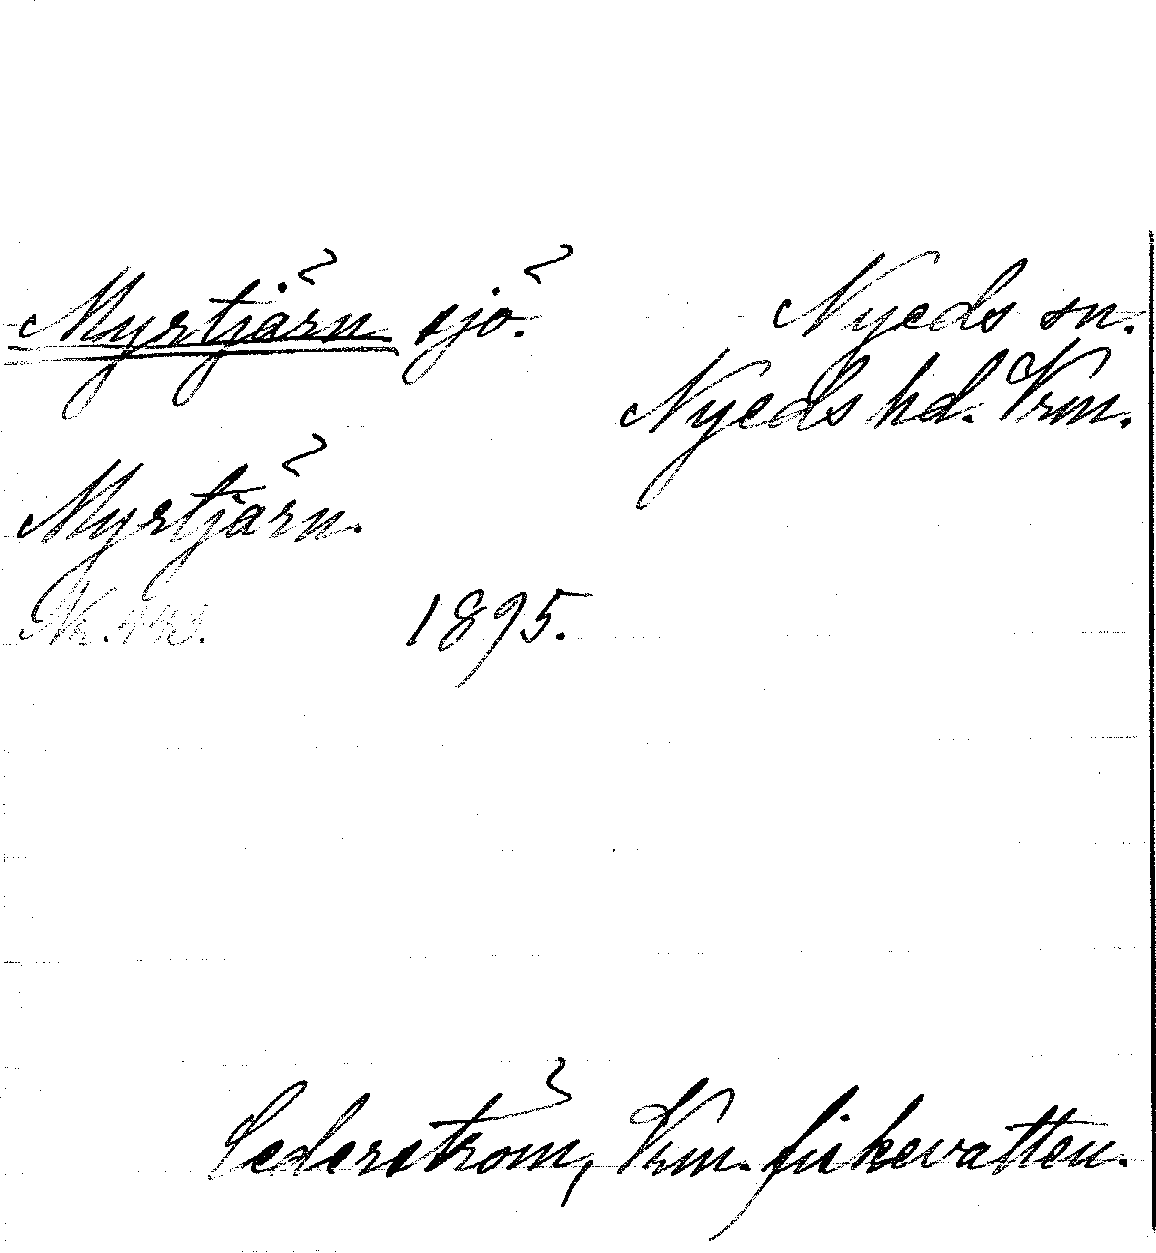 Myrtjärn sjö. Nyeds sn.
Nyeds hd. Vrm.
Myrtjärn.
1895.
Cederström, Vrm. fiskevatten.